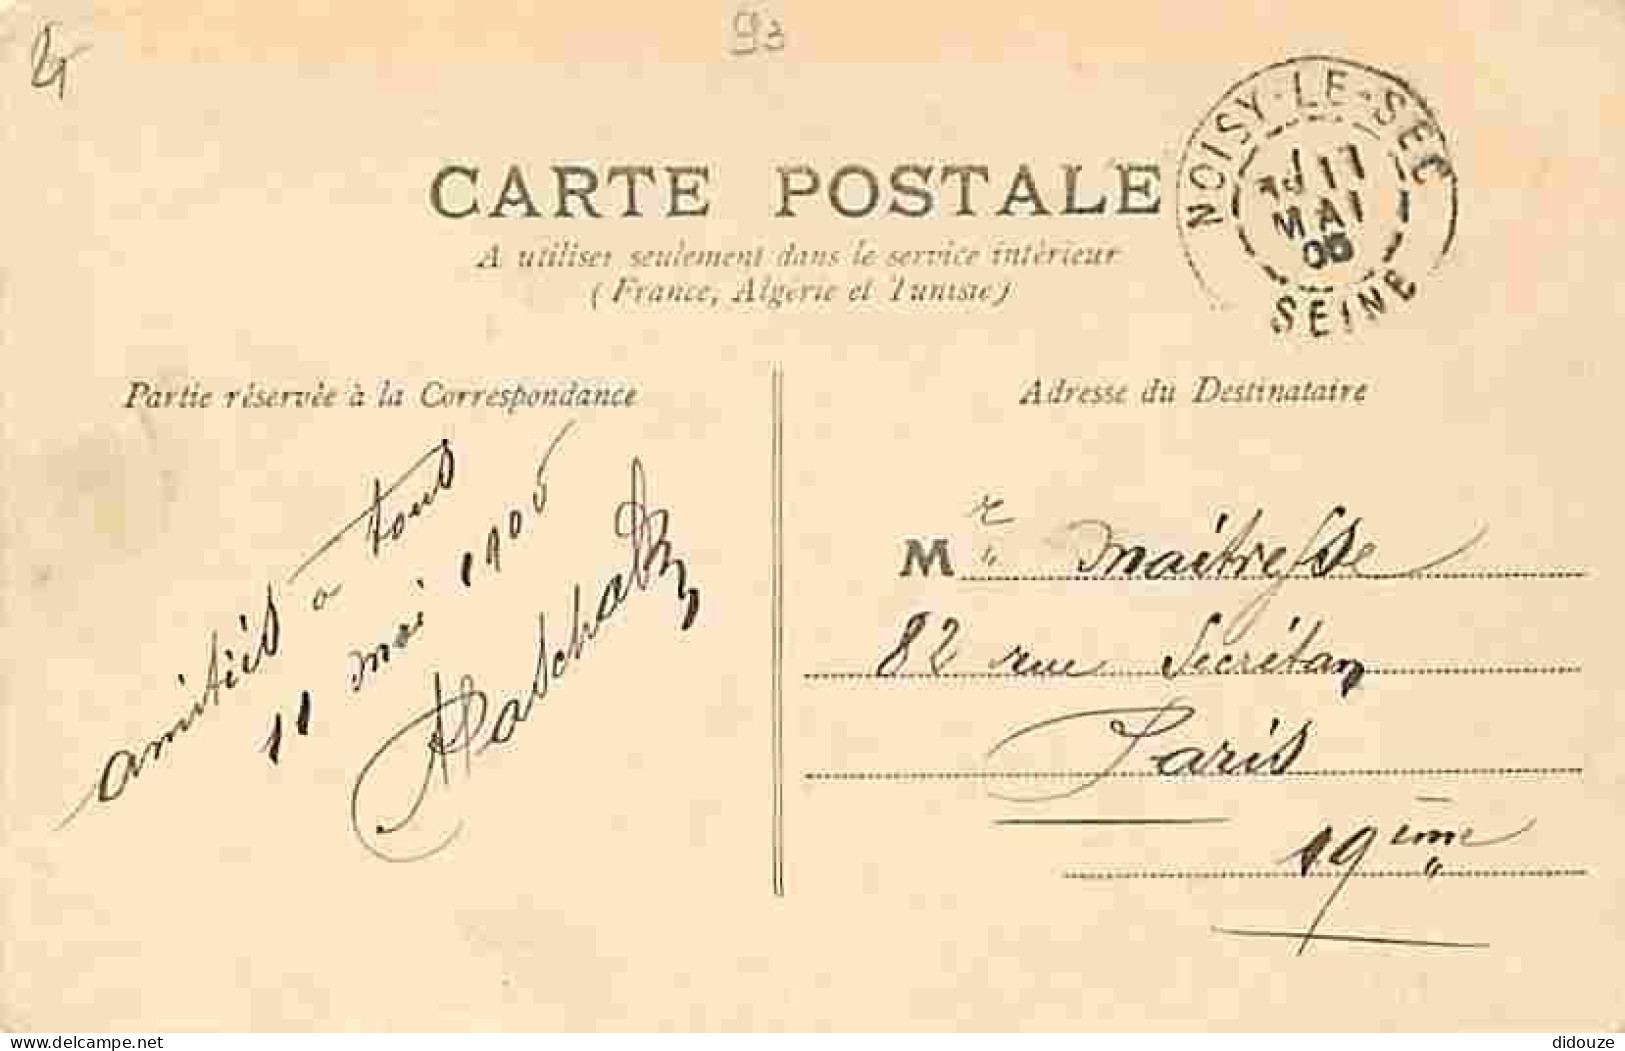 93
NOISY-LE-SEC
11
MAI
05
SEINE
CARTE POSTALE
A utiliser seulement dans le service intérieur
(France, Algérie et Tunisie)
Partie réservée à la Correspondance
Adresse du Destinataire
amitiés a tous
11 mai 1905
Mr Maitresse
82 rue Secrétan
Paris
19ème
delcampe.net
didouze